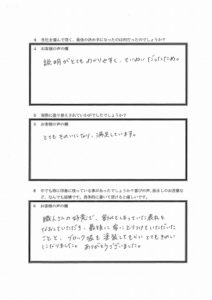 4 当社を選んで頂く、最後の決め手になったのは何だったのでしょうか？
4 お客様の声の欄
説明がとてもわかりやすく、ていねいだったため。
5 実際に塗り替えされていかがでしたでしょうか？
5 お客様の声の欄
とてもきれいになり、満足しています。
6 中でも特に印象に残っている事がありましたら
6 お客様の声の欄
職人さんの好意で、
なおしていただき、最後に
ことと、ブロック塀も塗装してもらい とてもきれい
になりました。ありがとうございました。